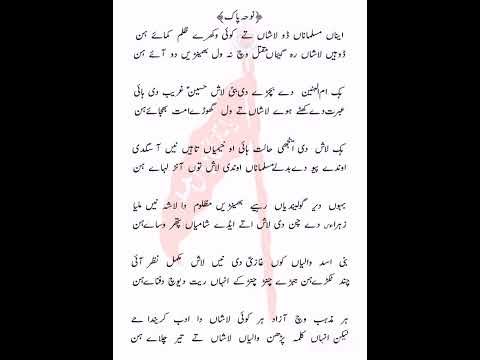 ﴿نوحہ پاک﴾
ایناں مسلماناں ڈو لاشاں تے کوئی وکھرے ظلم کمائے ہن
ڈوہیں لاشاں رہ گئیاں مقتل وچ نہ ول بھینڑیں دو آئے ہن
ہک ام البنین دے بچڑے دی ہئی لاش حسین غریب دی ہائی
عبرت دے کھنے ہوے لاشاں تے ول گھوڑے امت بھجائے ہن
ہک لاش دی انجھی حالت ہائی او خیمیاں تائیں نئیں آ سگدی
اوندے پیو دے بدلے مسلماناں اوندی لاش توں آنڑ لہاے ہن
بہوں دیر گولیندیاں رہیے بھینڑیں مظلوم دا لاشہ نئیں ملیا
زہراء دے چن دی لاش اتے ایڈے شامیاں پتھر وساے ہن
بنی اسد والیاں کوں غازی دی نئیں لاش مکمل نظر آئی
چند ٹکڑے ہن جہڑے چنڑ چنڑ کے انہاں ریت دیوچ دفناے ہن
ہر مذہب وچ آزاد ہر کوئی لاشاں دا ادب کریندا ہے
لیکن انہاں کلمہ پڑھن والیاں لاشاں تے تیر چلاے ہن